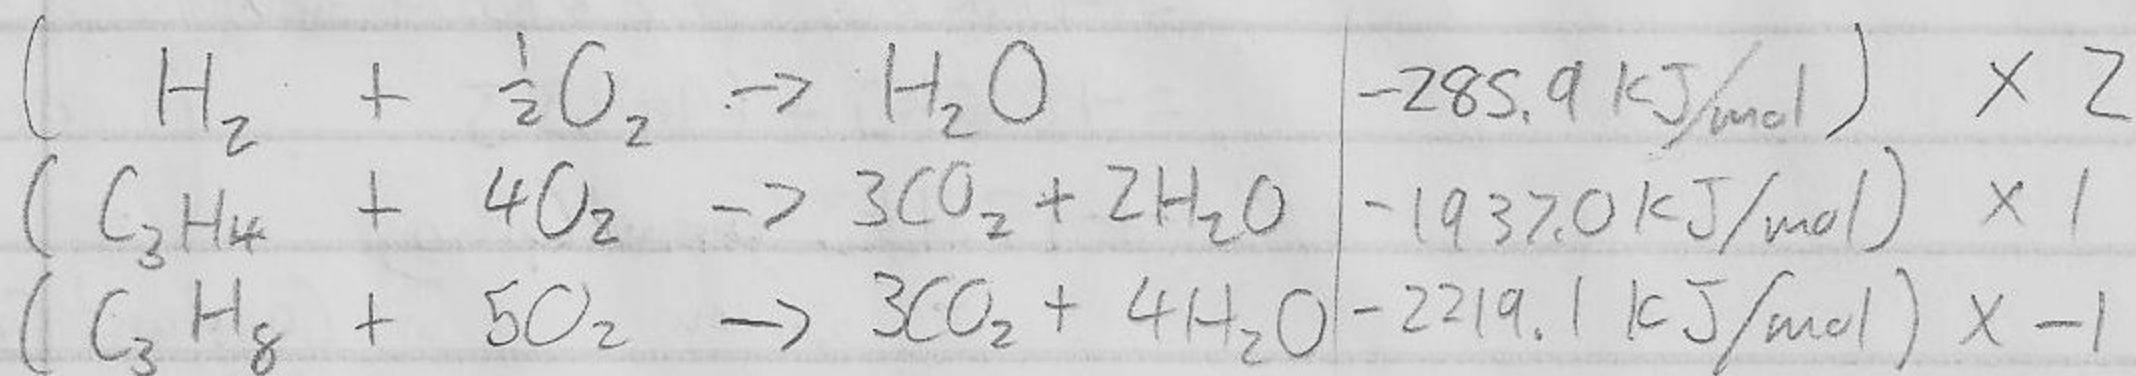 ( H₂ + ½O₂ -> H₂O | -285.9 kJ/mol ) × 2
( C₃H₄ + 4O₂ -> 3CO₂ + 2H₂O | -1937.0 kJ/mol ) × 1
( C₃H₈ + 5O₂ -> 3CO₂ + 4H₂O | -2219.1 kJ/mol ) × -1